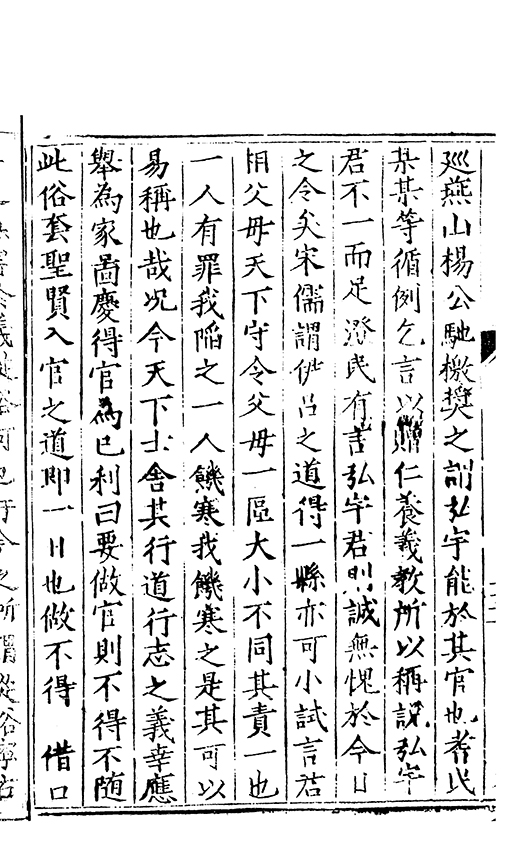 廵燕山楊公馳檄奨之謂弘宇能於其官也耆民
某某等循例乞言以贈仁養義教所以稱說弘宇
君不一而足澄民有言弘宇君則誠無愧於今日
之令矣宋儒謂伊吕之道得一縣亦可小試言君
相父毋天下守令父毋一區大小不同其責一也
一人有罪我陥之一人饑寒我饑寒之是其可以
易稱也哉况今天下士舍其行道行志之義幸應
舉為家啚慶得官為已利曰要做官則不得不随
此俗套聖賢入官之道即一日也做不得 借口